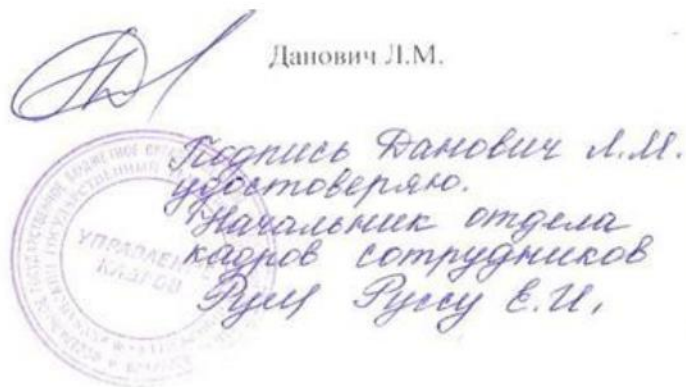 Данович Л.М.
Подпись Данович Л.М.
удостоверяю.
Начальник отдела
кадров сотрудников
Руссу Е.И.
УПРАВЛЕНИЕ
КАДРОВ